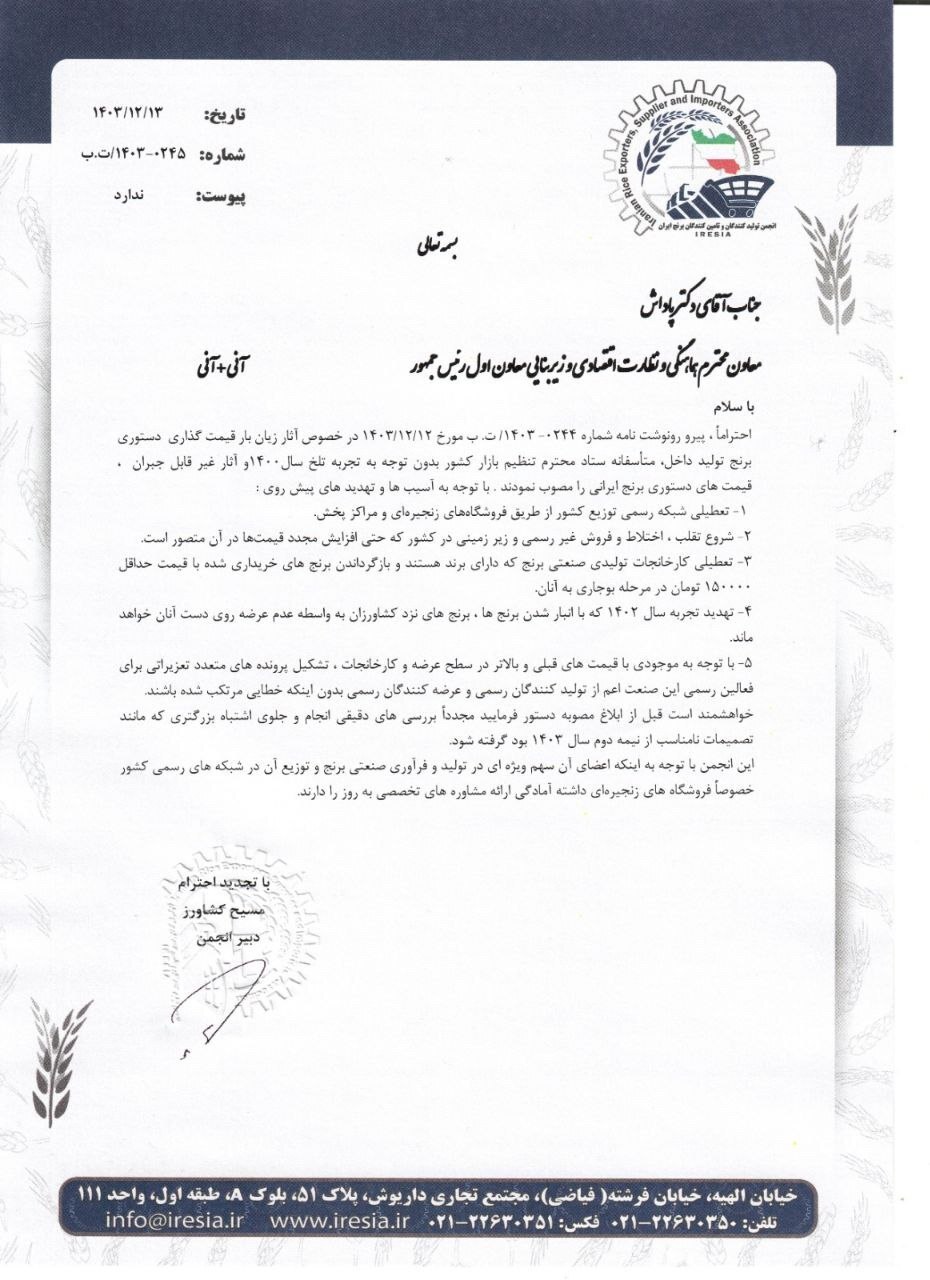 تاریخ: ۱۴۰۳/۱۲/۱۳
شماره: ۱۴۰۳-۰۲۴۵/ت.ب
پیوست: ندارد
Iranian Rice Exporters, Supplier and Importers Association
انجمن تولید کنندگان و تامین کنندگان برنج ایران
IRESIA
بسمه تعالی
جناب آقای دکتر پاداش
معاون محترم هماهنگی و نظارت اقتصادی و زیربنایی معاون اول رئیس جمهور
آنی+آنی
با سلام
احتراماً ، پیرو رونوشت نامه شماره ۰۲۴۴- ۱۴۰۳/ ت. ب مورخ ۱۴۰۳/۱۲/۱۲ در خصوص آثار زیان بار قیمت گذاری دستوری
برنج تولید داخل، متأسفانه ستاد محترم تنظیم بازار کشور بدون توجه به تجربه تلخ سال۱۴۰۰و آثار غیر قابل جبران ،
قیمت های دستوری برنج ایرانی را مصوب نمودند . با توجه به آسیب ها و تهدید های پیش روی :
۱- تعطیلی شبکه رسمی توزیع کشور از طریق فروشگاه‌های زنجیره‌ای و مراکز پخش.
۲- شروع تقلب ، اختلاط و فروش غیر رسمی و زیر زمینی در کشور که حتی افزایش مجدد قیمت‌ها در آن متصور است.
۳- تعطیلی کارخانجات تولیدی صنعتی برنج که دارای برند هستند و بازگرداندن برنج های خریداری شده با قیمت حداقل
۱۵۰۰۰۰ تومان در مرحله بوجاری به آنان.
۴- تهدید تجربه سال ۱۴۰۲ که با انبار شدن برنج ها ، برنج های نزد کشاورزان به واسطه عدم عرضه روی دست آنان خواهد
ماند.
۵- با توجه به موجودی با قیمت های قبلی و بالاتر در سطح عرضه و کارخانجات ، تشکیل پرونده های متعدد تعزیراتی برای
فعالین رسمی این صنعت اعم از تولید کنندگان رسمی و عرضه کنندگان رسمی بدون اینکه خطایی مرتکب شده باشند.
خواهشمند است قبل از ابلاغ مصوبه دستور فرمایید مجدداً بررسی های دقیقی انجام و جلوی اشتباه بزرگتری که مانند
تصمیمات نامناسب از نیمه دوم سال ۱۴۰۳ بود گرفته شود.
این انجمن با توجه به اینکه اعضای آن سهم ویژه ای در تولید و فرآوری صنعتی برنج و توزیع آن در شبکه های رسمی کشور
خصوصاً فروشگاه های زنجیره‌ای داشته آمادگی ارائه مشاوره های تخصصی به روز را دارند.
با تجدید احترام
مسیح کشاورز
دبیر انجمن
خیابان الهیه، خیابان فرشته( فیاضی)، مجتمع تجاری داریوش، پلاک ۵۱، بلوک A، طبقه اول، واحد ۱۱۱
تلفن: ۲۲۶۳۰۳۵۰-۰۲۱ فکس: ۲۲۶۳۰۳۵۱-۰۲۱ www.iresia.ir info@iresia.ir